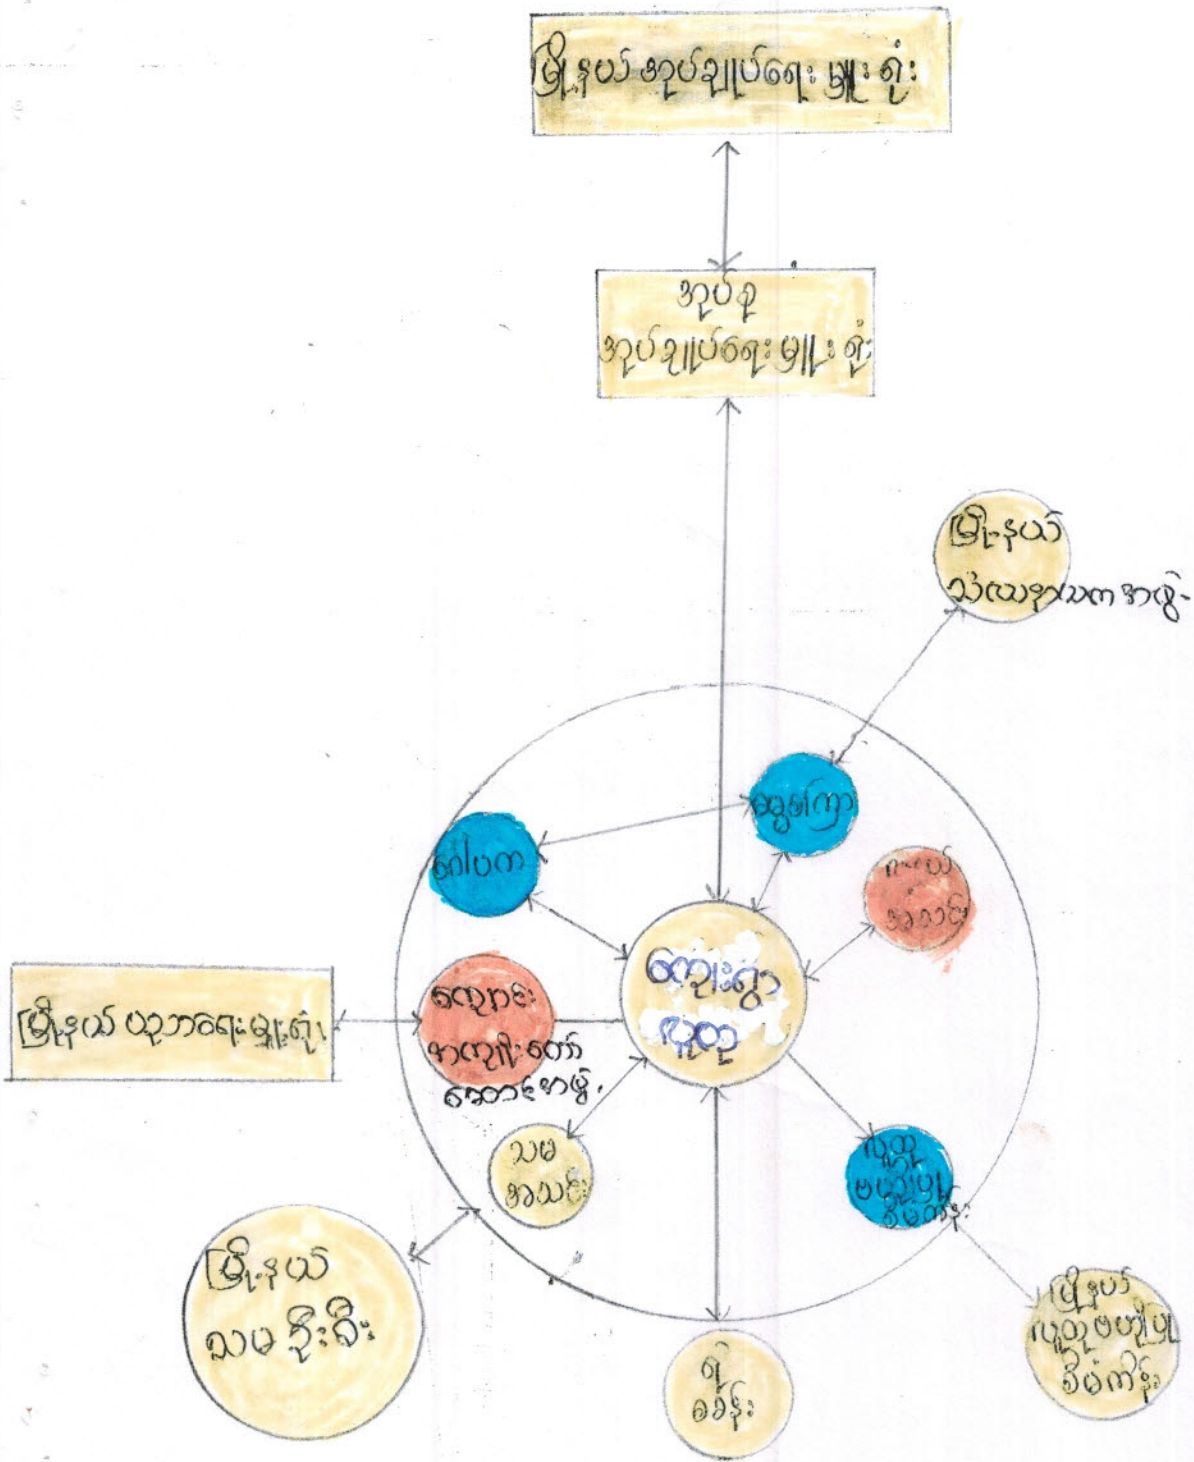 မြို့နယ် အုပ်ချုပ်ရေး မှူး ရုံး
အုပ်စု
အုပ်ချုပ်ရေး မှူး ရုံး
မြို့နယ်
သံဃနာယက အဖွဲ့
ဓမ္မစကြာ
ဂေါပက
အသင်း
ကျေးရွာ
လူထု
မြို့နယ် ပညာရေး မှူးရုံး
ကျောင်း
အကျိုးတော်
ဆောင်အဖွဲ့
သမ
အသင်း
လူထု
ဗဟိုပြု
စီမံကိန်း
မြို့နယ်
သမ ဦးစီး
မြို့နယ်
လူထု ဗဟိုပြု
စီမံကိန်း
ရဲ
စခန်း